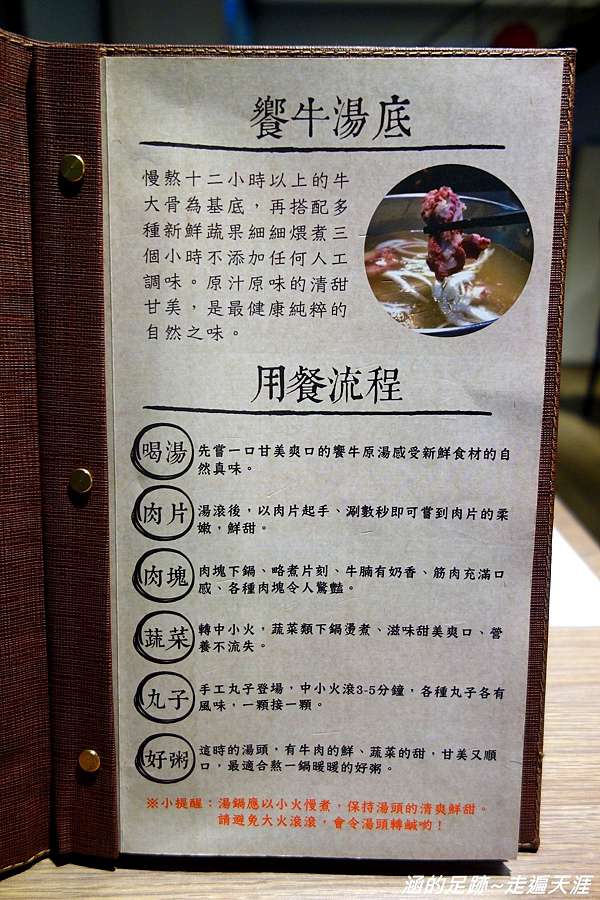 饗牛湯底
慢熬十二小時以上的牛
大骨為基底，再搭配多
種新鮮蔬果細細煨煮三
個小時不添加任何人工
調味。原汁原味的清甜
甘美，是最健康純粹的
自然之味。
用餐流程
喝湯
先嘗一口甘美爽口的饗牛原湯感受新鮮食材的自
然真味。
肉片
湯滾後，以肉片起手、涮數秒即可嘗到肉片的柔
嫩，鮮甜。
肉塊
肉塊下鍋、略煮片刻、牛腩有奶香、筋肉充滿口
感、各種肉塊令人驚豔。
蔬菜
轉中小火，蔬菜類下鍋燙煮、滋味甜美爽口、營
養不流失。
丸子
手工丸子登場，中小火滾3-5分鐘，各種丸子各有
風味，一顆接一顆。
好粥
這時的湯頭，有牛肉的鮮、蔬菜的甜，甘美又順
口，最適合熬一鍋暖暖的好粥。
※小提醒：湯鍋應以小火慢煮，保持湯頭的清爽鮮甜。
請避免大火滾滾，會令湯頭轉鹹喲！
涵的足跡~走遍天涯